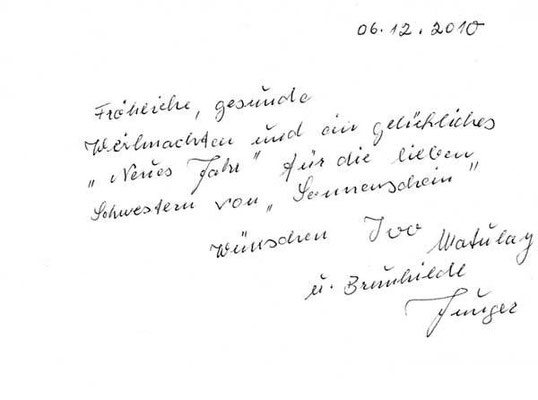 06.12.2010
Fröhliche, gesunde
Weihnachten und ein gelückliches
"Neues Jahr" für die lieben
Schwestern von "Sonnenschein"
wünschen Ivo Matulay
u. Brunhilde
Junger